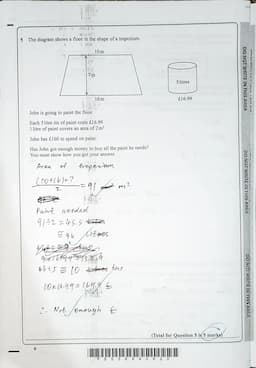 5 The diagram shows a floor in the shape of a trapezium.
10 m
7 m
16 m
5 litres
£16.99
John is going to paint the floor.
Each 5 litre tin of paint costs £16.99
1 litre of paint covers an area of 2m²
John has £160 to spend on paint.
Has John got enough money to buy all the paint he needs?
You must show how you got your answer.
Area of trapezium
(10+16)×7
2
= 91 m²
Paint needed
91÷2 = 45.5
≅ 46 litres
46÷5 ≅ 10 tins
10×16.99 = 169.9 £
∴ Not enough £
(Total for Question 5 is 5 marks)
6
DO NOT WRITE IN THIS AREA
DO NOT WRITE IN THIS AREA
DO NOT WRITE IN THIS AREA